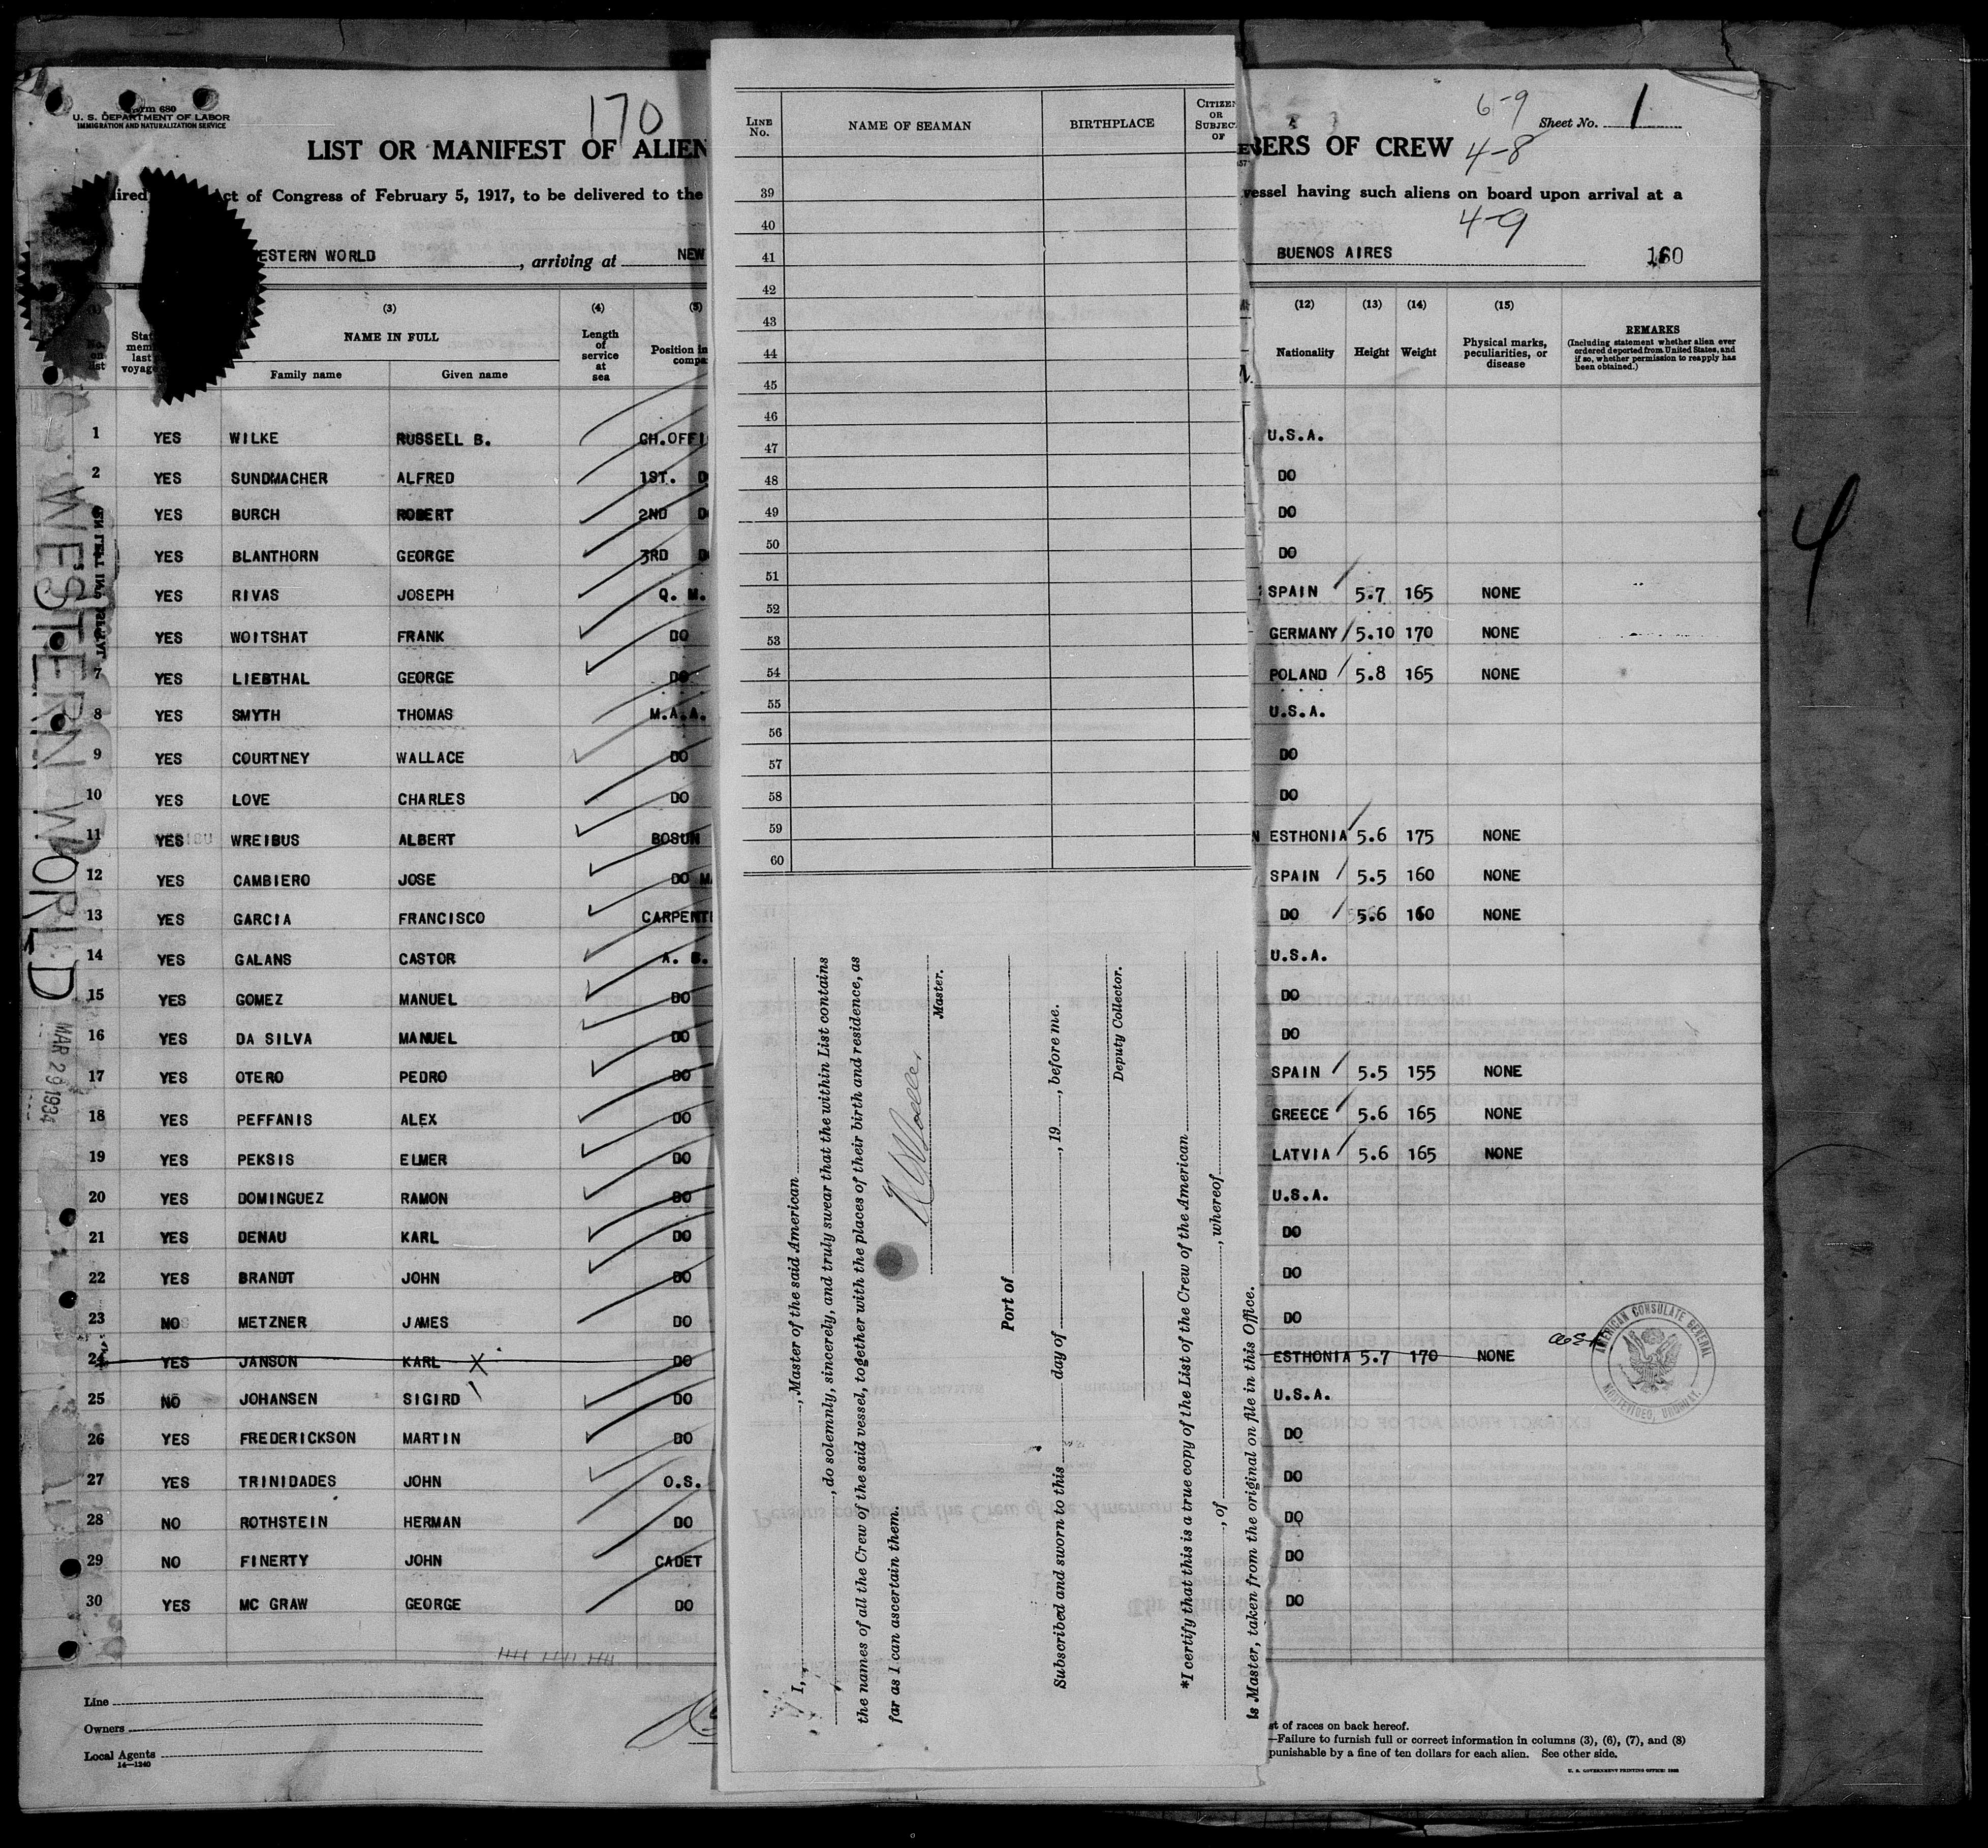 Form 680
U. S. DEPARTMENT OF LABOR
IMMIGRATION AND NATURALIZATION SERVICE
170
LIST OR MANIFEST OF ALIEN
ct of Congress of February 5, 1917, to be delivered to the
ESTERN WORLD , arriving at NEW
(3) (4) (5)
NAME IN FULL
Family name Given name
Length of service at sea
Position in
No. on list
1 YES WILKE RUSSELL B. CH.OFFI
2 YES SUNDMACHER ALFRED 1ST. D
YES BURCH ROBERT 2ND D
YES BLANTHORN GEORGE 3RD D
YES RIVAS JOSEPH Q. M.
YES WOITSHAT FRANK DO
7 YES LIEBTHAL GEORGE DO
8 YES SMYTH THOMAS M.A.A.
9 YES COURTNEY WALLACE DO
10 YES LOVE CHARLES DO
11 YES WREIBUS ALBERT BOSUN
12 YES CAMBIERO JOSE DO M
13 YES GARCIA FRANCISCO CARPENT
14 YES GALANS CASTOR A. B.
15 YES GOMEZ MANUEL DO
16 YES DA SILVA MANUEL DO
17 YES OTERO PEDRO DO
18 YES PEFFANIS ALEX DO
19 YES PEKSIS ELMER DO
20 YES DOMINGUEZ RAMON DO
21 YES DENAU KARL DO
22 YES BRANDT JOHN DO
23 NO METZNER JAMES DO
24 YES JANSON KARL X DO
25 NO JOHANSEN SIGIRD DO
26 YES FREDERICKSON MARTIN DO
27 YES TRINIDADES JOHN O.S.
28 NO ROTHSTEIN HERMAN DO
29 NO FINERTY JOHN CADET
30 YES MC GRAW GEORGE DO
Line
Owners
Local Agents
14—1240
WESTERN WORLD
MAR 29 1934
LINE No. NAME OF SEAMAN BIRTHPLACE CITIZEN OR SUBJEC OF
39
40
41
42
43
44
45
46
47
48
49
50
51
52
53
54
55
56
57
58
59
60
I, , Master of the said American
, do solemnly, sincerely, and truly swear that the within List contains
the names of all the Crew of the said vessel, together with the places of their birth and residence, as
far as I can ascertain them.
Master.
Port of
Subscribed and sworn to this day of , 19 , before me.
Deputy Collector.
*I certify that this is a true copy of the List of the Crew of the American
, of , whereof
is Master, taken from the original on file in this Office.
6-9
Sheet No. 1
BERS OF CREW 4-8
vessel having such aliens on board upon arrival at a
4-9
BUENOS AIRES 160
(12) (13) (14) (15)
Nationality Height Weight
Physical marks, peculiarities, or disease
REMARKS
(Including statement whether alien ever ordered deported from United States, and if so, whether permission to reapply has been obtained.)
U.S.A.
DO
DO
DO
SPAIN 5.7 165 NONE
GERMANY 5.10 170 NONE
POLAND 5.8 165 NONE
U.S.A.
DO
DO
ESTHONIA 5.6 175 NONE
SPAIN 5.5 160 NONE
DO 5.6 160 NONE
U.S.A.
DO
DO
SPAIN 5.5 155 NONE
GREECE 5.6 165 NONE
LATVIA 5.6 165 NONE
U.S.A.
DO
DO
DO
ESTHONIA 5.7 170 NONE
U.S.A.
DO
DO
DO
DO
DO
AMERICAN CONSULATE GENERAL
MONTEVIDEO, URUGUAY.
st of races on back hereof.
—Failure to furnish full or correct information in columns (3), (6), (7), and (8)
punishable by a fine of ten dollars for each alien. See other side.
U. S. GOVERNMENT PRINTING OFFICE: 1932
4